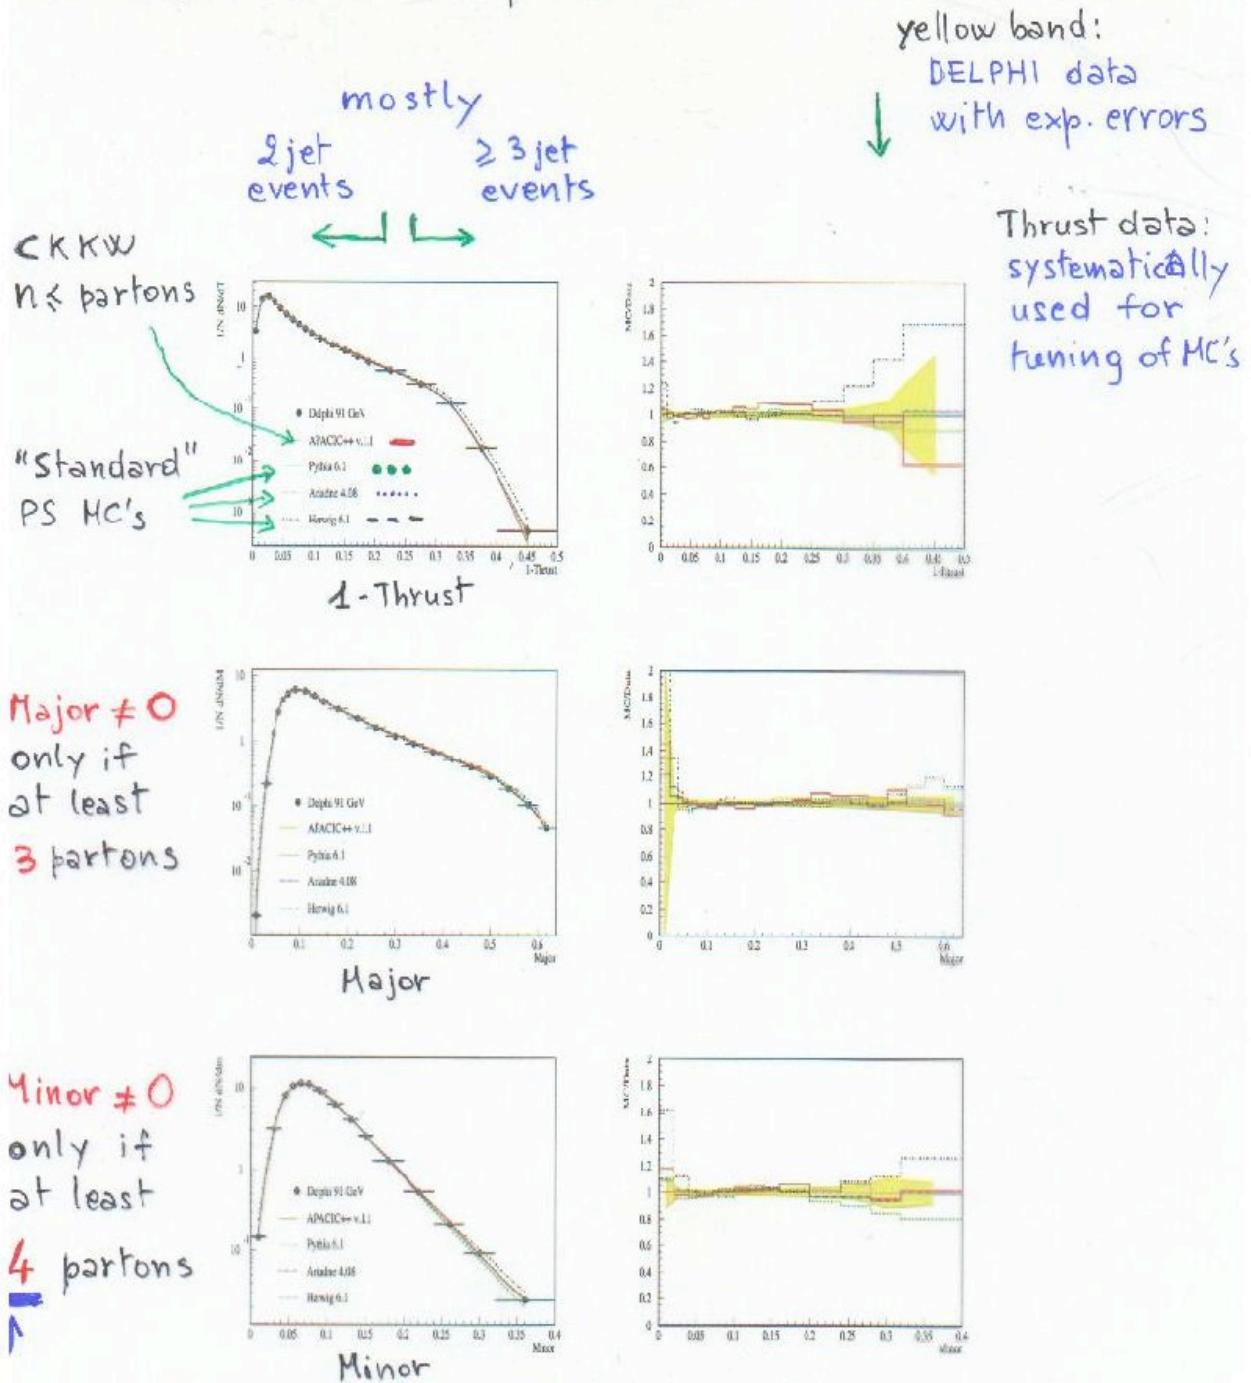 yellow band:
DELPHI data
with exp. errors
mostly
2 jet
events
≥ 3 jet
events
Thrust data:
systematically
used for
tuning of MC's
CKKW
n≤ partons
"Standard"
PS MC's
10
1
Delphi 91 GeV
APACIC++ v.1.1
Pythia 6.1
Ariadne 4.08
Herwig 6.1
0 0.05 0.1 0.15 0.2 0.25 0.3 0.35 0.4 0.45 0.5
1-Thrust
1-Thrust
MC/Data
2
1.8
1.6
1.4
1.2
1
0.8
0.6
0.4
0.2
0
0 0.05 0.1 0.15 0.2 0.25 0.3 0.35 0.4 0.45 0.5
1-Thrust
Major ≠ 0
only if
at least
3 partons
10
1
Delphi 91 GeV
APACIC++ v.1.1
Pythia 6.1
Ariadne 4.08
Herwig 6.1
0 0.1 0.2 0.3 0.4 0.5 0.6
Major
Major
MC/Data
2
1.8
1.6
1.4
1.2
1
0.8
0.6
0.4
0.2
0
0 0.1 0.2 0.3 0.4 0.5 0.6
Major
Minor ≠ 0
only if
at least
4 partons
10
1
Delphi 91 GeV
APACIC++ v.1.1
Pythia 6.1
Ariadne 4.08
Herwig 6.1
0 0.05 0.1 0.15 0.2 0.25 0.3 0.35 0.4
Minor
Minor
MC/Data
2
1.8
1.6
1.4
1.2
1
0.8
0.6
0.4
0.2
0
0 0.05 0.1 0.15 0.2 0.25 0.3 0.35 0.4
Minor